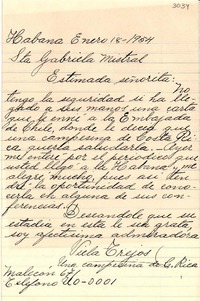 3034
Habana Enero 18-1954
Sta Gabriela Mistral
Estimada señorita: No
tengo la seguridad si ha lle
gado a sus manos una carta
que le envié a la Embajada
de Chile, donde le decía que
una campesina de Costa Ri
ca quería saludarla. Ayer
me enteré por el periódico que
usted llegó a la Habana, me
alegré mucho, pues así ten
dré la oportunidad de cono
cerla en alguna de sus con
ferencias. Deseandole que su
estadía en esta le sea grata,
soy afectísima admiradora
Vida Trejos
Una campesina de C. Rica
Malecon 67
Teléfono 0-0001